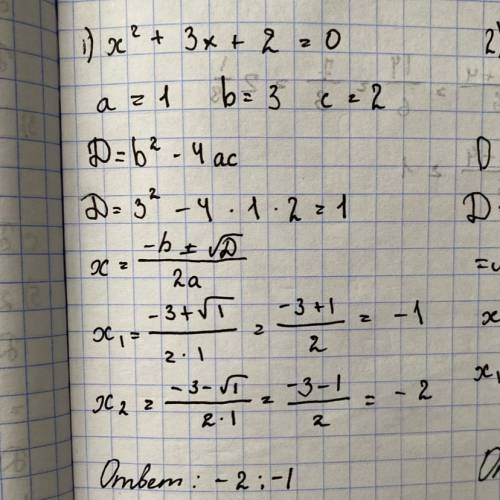 1) x² + 3x + 2 = 0
a = 1 b = 3 c = 2
D = b² - 4ac
D = 3² - 4 · 1 · 2 = 1
x = (-b ± √D) / 2a
x₁ = (-3 + √1) / 2·1 = (-3 + 1) / 2 = -1
x₂ = (-3 - √1) / 2·1 = (-3 - 1) / 2 = -2
Ответ: -2; -1
2)
D
D
x
x₁